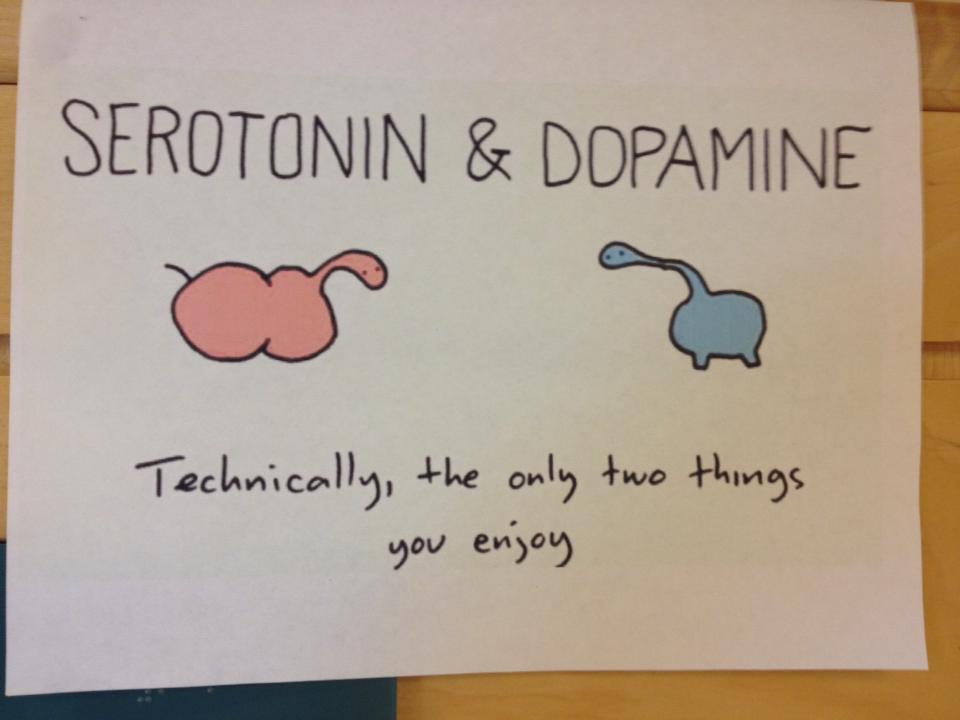 SEROTONIN & DOPAMINE
Technically, the only two things
you enjoy